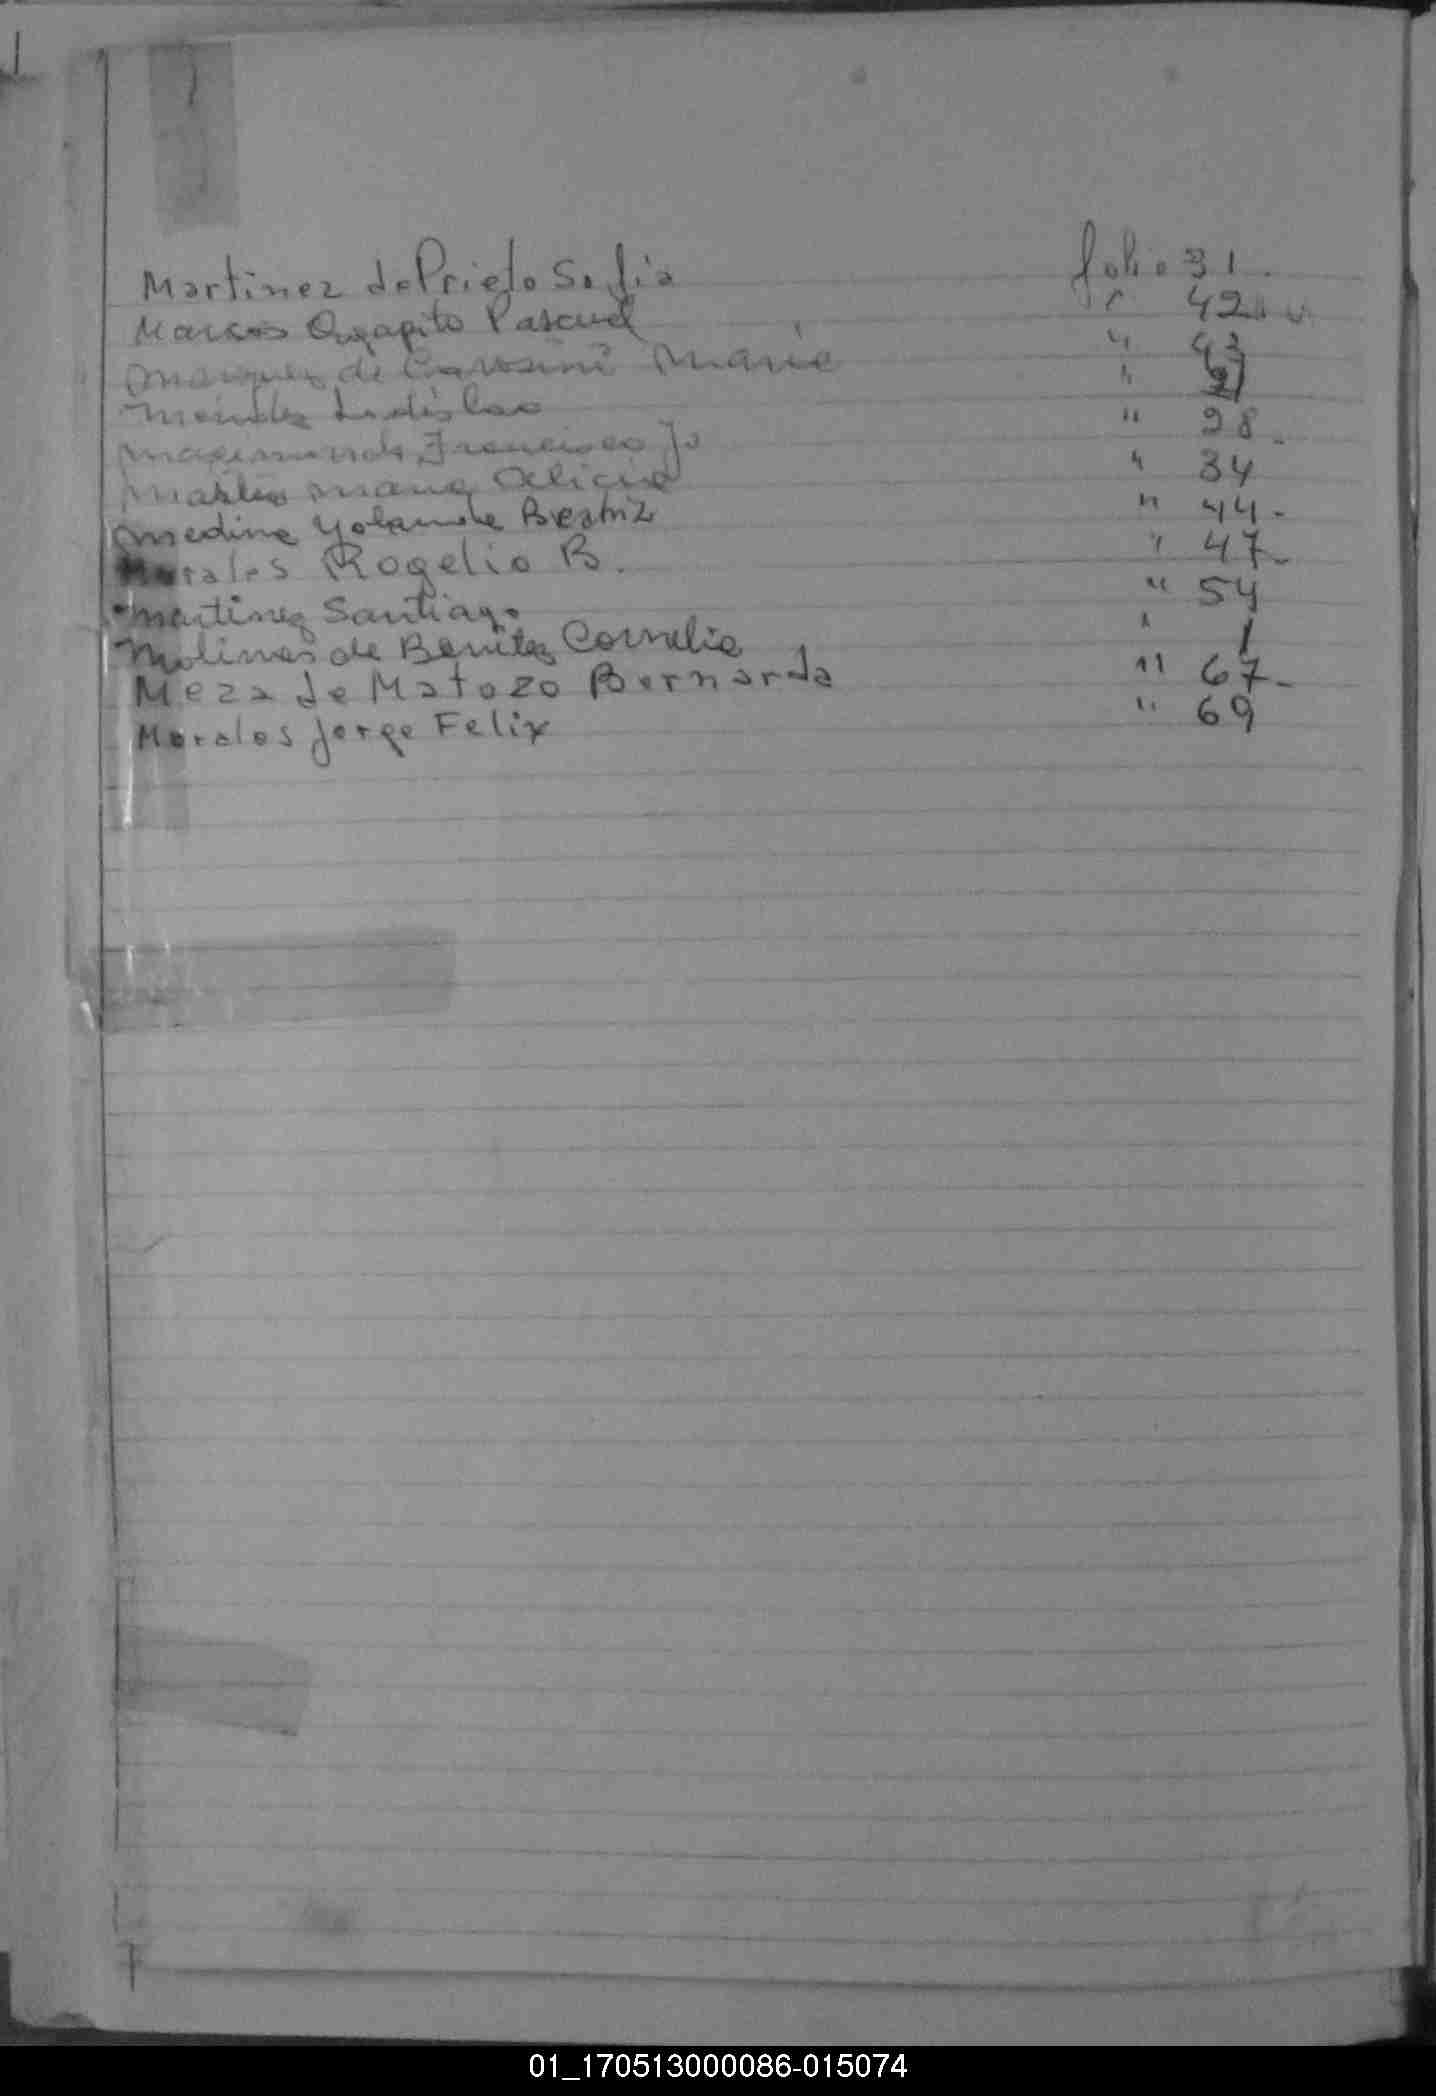 Martinez de Prieto Sofia folio 31.
Marcos Agapito Pascual " 42
Marquez de Maria " 43
Mendez Ladislao "
Francisco J. " 28.
Maria Alicia " 34
Medina Yolanda Beatriz " 44.
Morales Rogelio B. " 47.
Martinez Santiago " 54
Molinas de Benitez Cornelia " 1
Meza de Matozo Bernarda " 67.
Morales Jorge Felix " 69
01_170513000086-015074